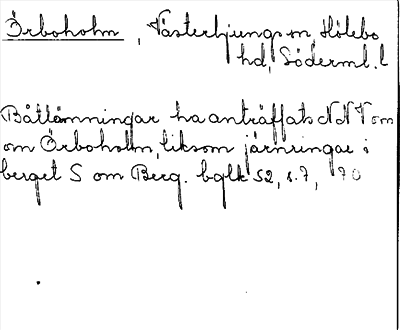 Örboholm, Västerljungs sn, Hölebo
hd, Söderml. l
Båtlämningar ha anträffats NNV om
om Örboholm, liksom järnringar i
berget S om Berg. bglk 52, s. 7, 70